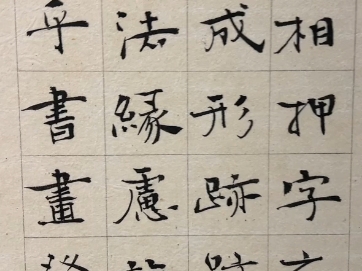 相押字
成形跡
法緣慮
乎書畫